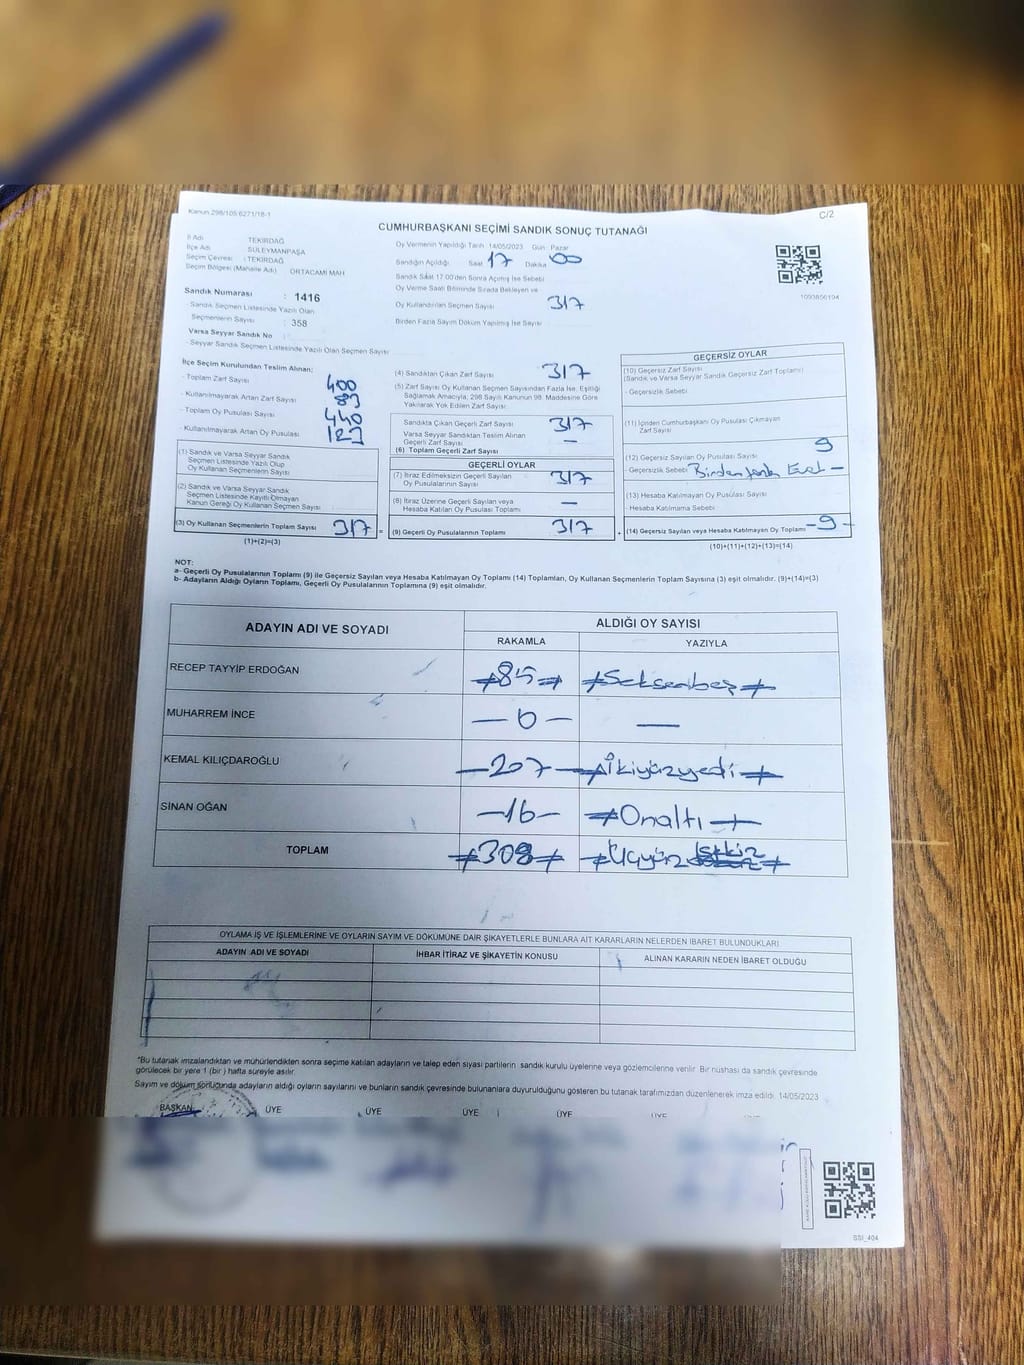 Kanun 298/105 6271/18-1
C/2
CUMHURBAŞKANI SEÇİMİ SANDIK SONUÇ TUTANAĞI
İl Adı TEKİRDAĞ
İlçe Adı SÜLEYMANPAŞA
Seçim Çevresi : TEKİRDAĞ
Seçim Bölgesi (Mahalle Adı) ORTACAMİ MAH
Sandık Numarası : 1416
- Sandık Seçmen Listesinde Yazılı Olan
Seçmenlerin Sayısı : 358
Varsa Seyyar Sandık No :
- Seyyar Sandık Seçmen Listesinde Yazılı Olan Seçmen Sayısı
Oy Vermenin Yapıldığı Tarih 14/05/2023 Gün : Pazar
Sandığın Açıldığı Saat 17 Dakika 00
Sandık Saat 17.00'den Sonra Açılmış İse Sebebi
Oy Verme Saati Bitiminde Sırada Bekleyen ve
Oy Kullandırılan Seçmen Sayısı 317
Birden Fazla Sayım Döküm Yapılmış İse Sayısı
1093856194
İlçe Seçim Kurulundan Teslim Alınan;
- Toplam Zarf Sayısı 400
- Kullanılmayarak Artan Zarf Sayısı 83
- Toplam Oy Pusulası Sayısı
- Kullanılmayarak Artan Oy Pusulası
(1) Sandık ve Varsa Seyyar Sandık
Seçmen Listesinde Yazılı Olup
Oy Kullanan Seçmenlerin Sayısı
(2) Sandık ve Varsa Seyyar Sandık
Seçmen Listesinde Kayıtlı Olmayan
Kanun Gereği Oy Kullanan Seçmen Sayısı
(3) Oy Kullanan Seçmenlerin Toplam Sayısı 317 =
(1)+(2)=(3)
(4) Sandıktan Çıkan Zarf Sayısı 317
(5) Zarf Sayısı Oy Kullanan Seçmen Sayısından Fazla İse, Eşitliği
Sağlamak Amacıyla, 298 Sayılı Kanunun 98. Maddesine Göre
Yakılarak Yok Edilen Zarf Sayısı
Sandıkta Çıkan Geçerli Zarf Sayısı 317
Varsa Seyyar Sandıktan Teslim Alınan
Geçerli Zarf Sayısı —
(6) Toplam Geçerli Zarf Sayısı
GEÇERLİ OYLAR
(7) İtiraz Edilmeksizin Geçerli Sayılan
Oy Pusulalarının Sayısı 317
(8) İtiraz Üzerine Geçerli Sayılan veya
Hesaba Katılan Oy Pusulası Toplamı —
(9) Geçerli Oy Pusulalarının Toplamı 317
GEÇERSİZ OYLAR
(10) Geçersiz Zarf Sayısı
(Sandık ve Varsa Seyyar Sandık Geçersiz Zarf Toplamı)
- Geçersizlik Sebebi
(11) İçinden Cumhurbaşkanı Oy Pusulası Çıkmayan
Zarf Sayısı
(12) Geçersiz Sayılan Oy Pusulası Sayısı 9
Geçersizlik Sebebi Birden fazla Evet —
(13) Hesaba Katılmayan Oy Pusulası Sayısı
- Hesaba Katılmama Sebebi
(14) Geçersiz Sayılan veya Hesaba Katılmayan Oy Toplamı -9-
(10)+(11)+(12)+(13)=(14)
NOT:
a- Geçerli Oy Pusulalarının Toplamı (9) ile Geçersiz Sayılan veya Hesaba Katılmayan Oy Toplamı (14) Toplamları, Oy Kullanan Seçmenlerin Toplam Sayısına (3) eşit olmalıdır. (9)+(14)=(3)
b- Adayların Aldığı Oyların Toplamı, Geçerli Oy Pusulalarının Toplamına (9) eşit olmalıdır.
ADAYIN ADI VE SOYADI ALDIĞI OY SAYISI
RAKAMLA YAZIYLA
RECEP TAYYİP ERDOĞAN 85 Seksenbeş
MUHARREM İNCE — 0 — —
KEMAL KILIÇDAROĞLU 207 ikiyüzyedi
SİNAN OĞAN —16— Onaltı
TOPLAM 308 Üçyüz sekiz
OYLAMA İŞ VE İŞLEMLERİNE VE OYLARIN SAYIM VE DÖKÜMÜNE DAİR ŞİKAYETLERLE BUNLARA AİT KARARLARIN NELERDEN İBARET BULUNDUKLARI
ADAYIN ADI VE SOYADI İHBAR İTİRAZ VE ŞİKAYETİN KONUSU ALINAN KARARIN NEDEN İBARET OLDUĞU
"Bu tutanak imzalandıktan ve mühürlendikten sonra seçime katılan adayların ve talep eden siyasi partilerin sandık kurulu üyelerine veya gözlemcilerine verilir. Bir nüshası da sandık çevresinde
görülecek bir yere 1 (bir) hafta süreyle asılır.
Sayım ve döküm sonucunda adayların aldığı oyların sayılarını ve bunların sandık çevresinde bulunanlara duyurulduğunu gösteren bu tutanak tarafımızdan düzenlenerek imza edildi. 14/05/2023
BAŞKAN ÜYE ÜYE ÜYE ÜYE ÜYE
SSI_404